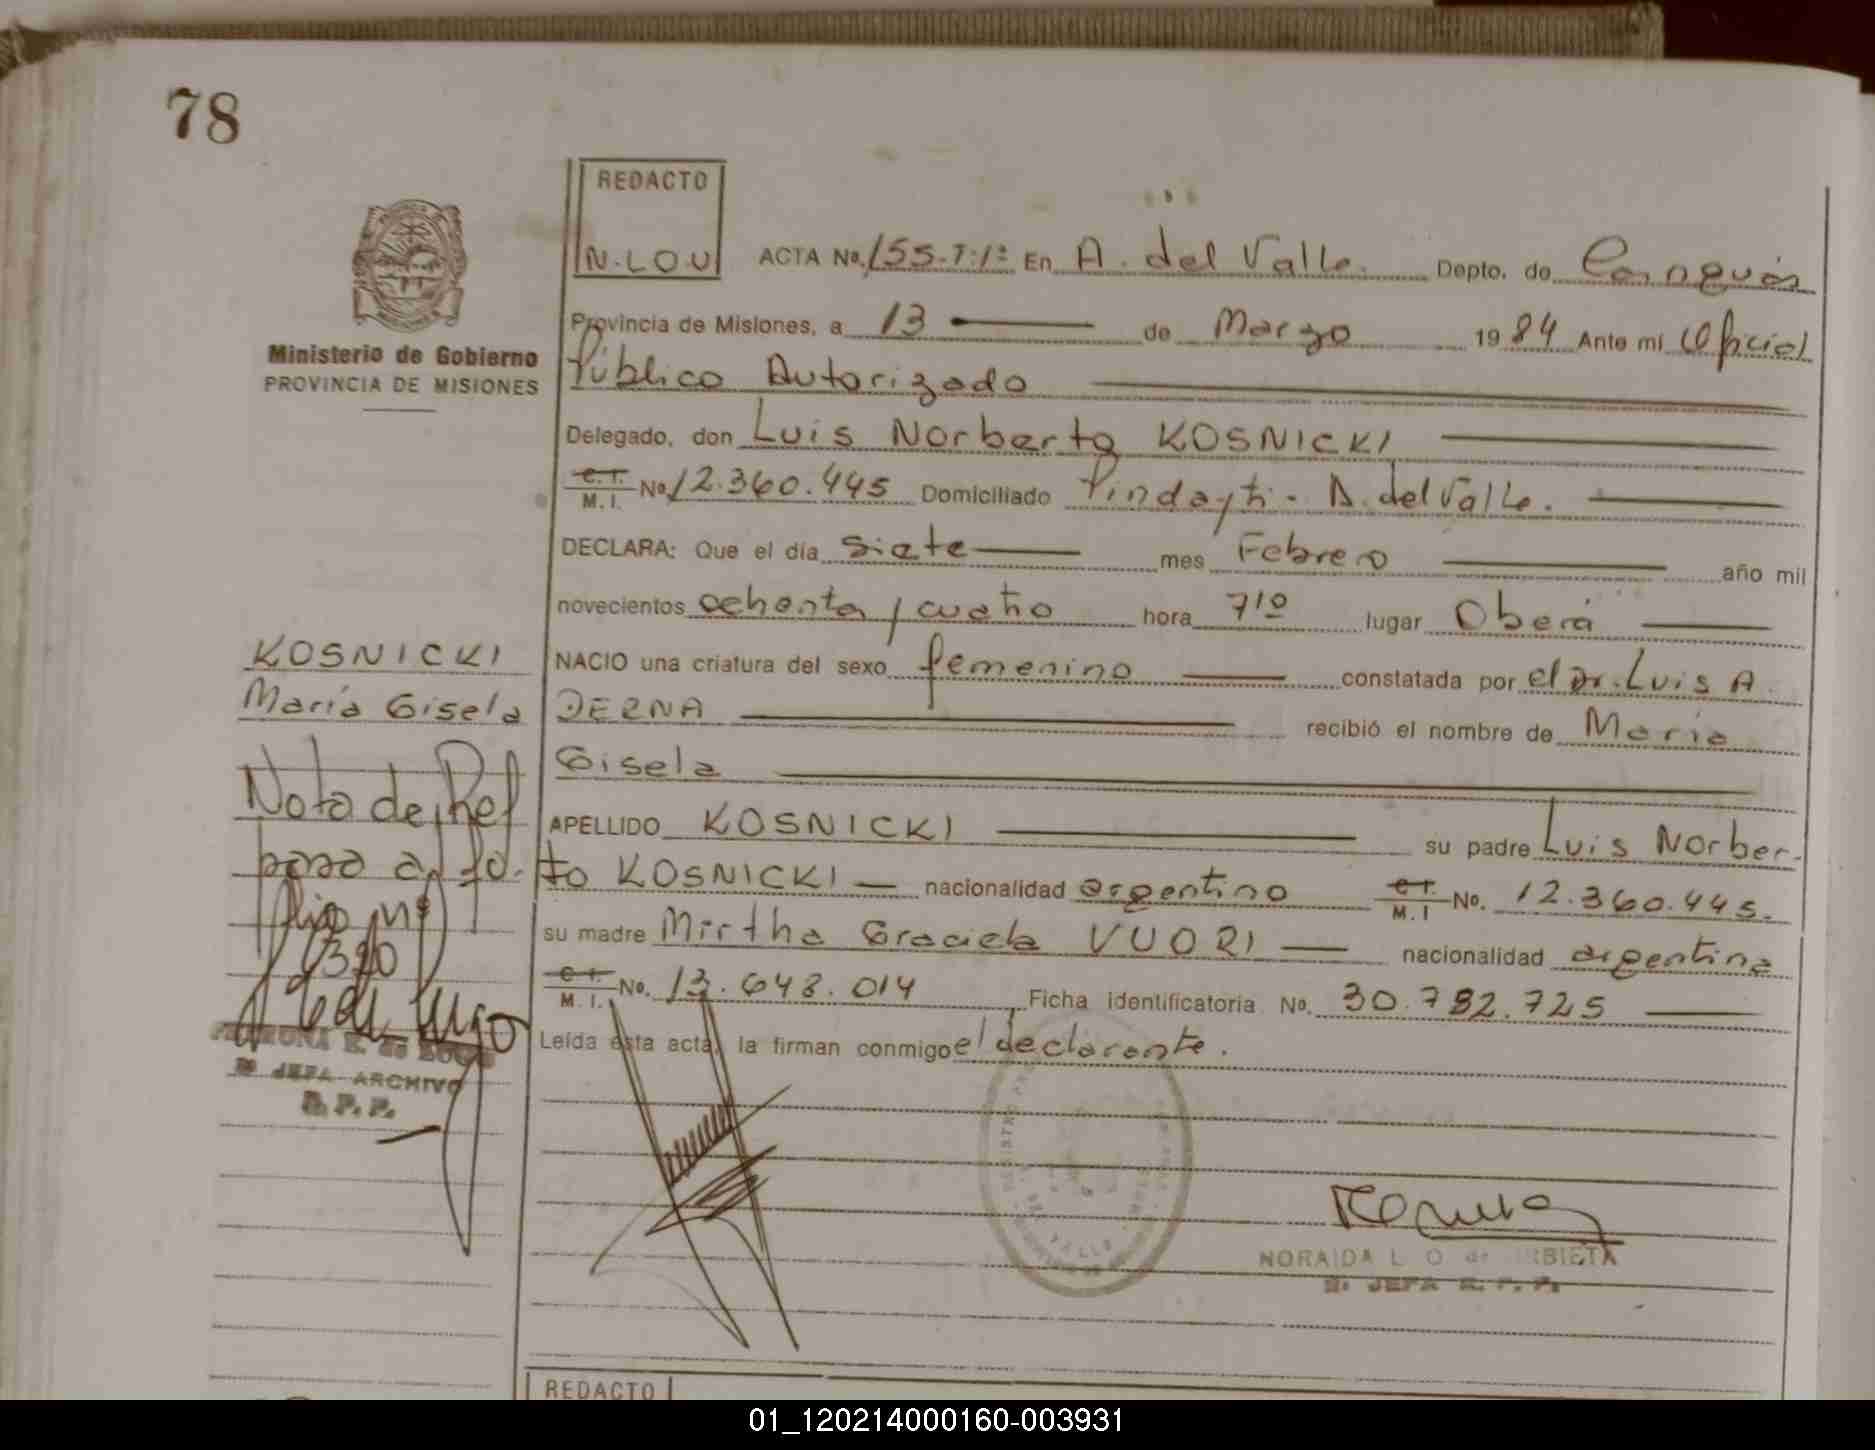 78
REDACTO
N.LOU
ACTA No. 155-T:1º En A. del Valle. Depto. de Cainguás
Provincia de Misiones, a 13 de Marzo 1984 Ante mi Oficial
Público Autorizado
Ministerio de Gobierno
PROVINCIA DE MISIONES
Delegado, don Luis Norberto KOSNICKI
C.I. M.I. No. 12.360.445 Domiciliado Pindayti - A. del Valle.
DECLARA: Que el día siete mes Febrero año mil
novecientos ochenta y cuatro hora 7,10 lugar Oberá
NACIO una criatura del sexo femenino constatada por el Dr. Luis A.
DERNA recibió el nombre de María
Gisela
APELLIDO KOSNICKI su padre Luis Norber-
to KOSNICKI nacionalidad argentino C.I. M.I No. 12.360.445.
su madre Mirtha Graciela VUORI nacionalidad argentina
C.I. M.I. No. 13.648.014 Ficha identificatoria No. 30.782.725
Leída esta acta, la firman conmigo el declarante.
KOSNICKI
María Gisela
Nota de Ref
pasa al fo-
lio nº
1320
JEFA ARCHIVO
R.P.P.
NORAIDA L. O. de URBIETA
JEFA R. P. P.
REDACTO
01_120214000160-003931